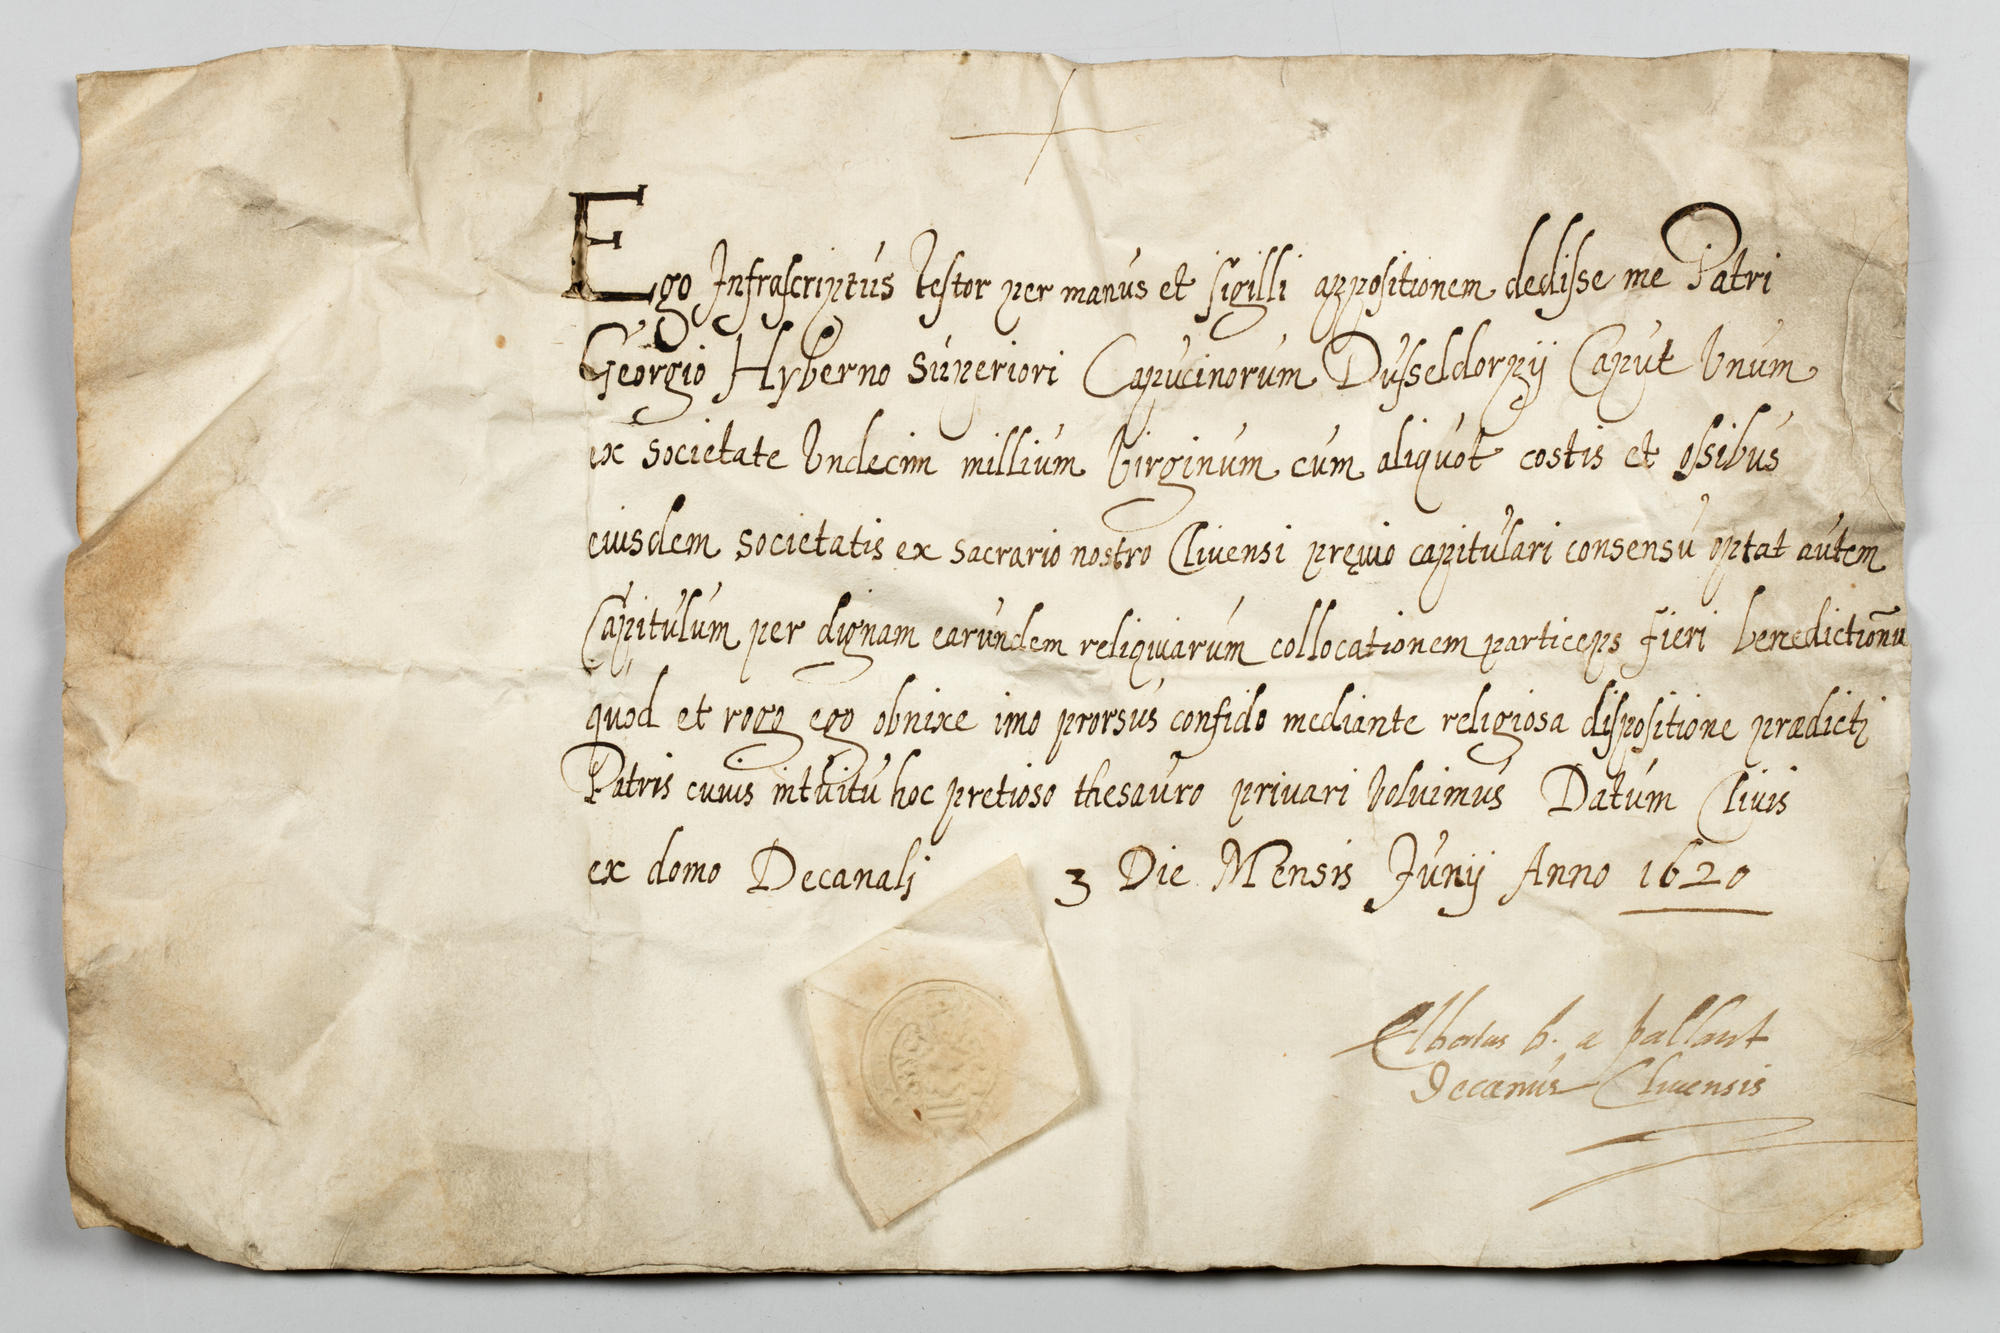 Ego Infrascriptus testor per manus et sigilli appositionem dedisse me Patri
Georgio Hyberno Superiori Capucinorum Dusseldorpij Caput Vnum
ex societate Vndecim millium Virginum cum aliquot costis et ossibus
eiusdem societatis ex sacrario nostro Cliuensi pręuio capitulari consensu optat autem
Capitulum per dignam earundem reliquiarum collocationem particeps fieri benedictionū
quod et rogo ego obnixe imo prorsus confido mediante religiosa dispositione prædicti
Patris cuius intuitu hoc pretioso thesauro priuari Voluimus Datum Cliuis
ex domo Decanali 3 Die Mensis Junij Anno 1620
Elbertus b. a pallant
Decanus Cliuensis